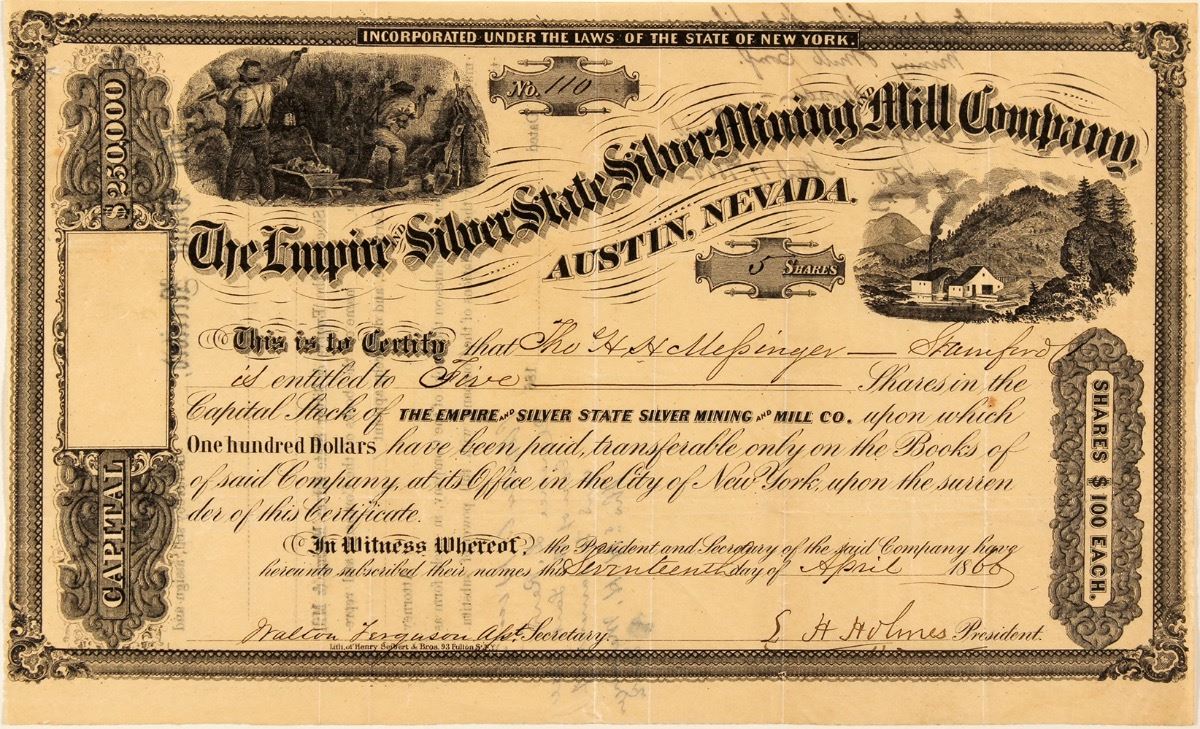 INCORPORATED UNDER THE LAWS OF THE STATE OF NEW YORK.
$250,000
No. 110
The Empire AND Silver State Silver Mining AND Mill Company,
AUSTIN, NEVADA.
5 SHARES
This is to Certify that Tho H. H. Meßinger — Stamford
is entitled to Five Shares in the
Capital Stock of THE EMPIRE AND SILVER STATE SILVER MINING AND MILL CO. upon which
One hundred Dollars have been paid, transferable only on the Books of
of said Company, at its Office in the City of New York, upon the surren
der of this Certificate.
In Witness Whereof, the President and Secretary of the said Company have
hereunto subscribed their names this Seventeenth day of April 1866
Walton Ferguson Asst. Secretary.
E H Holmes President.
Lith. of Henry Seibert & Bros. 93 Fulton St. N.Y.
CAPITAL
SHARES $100 EACH.